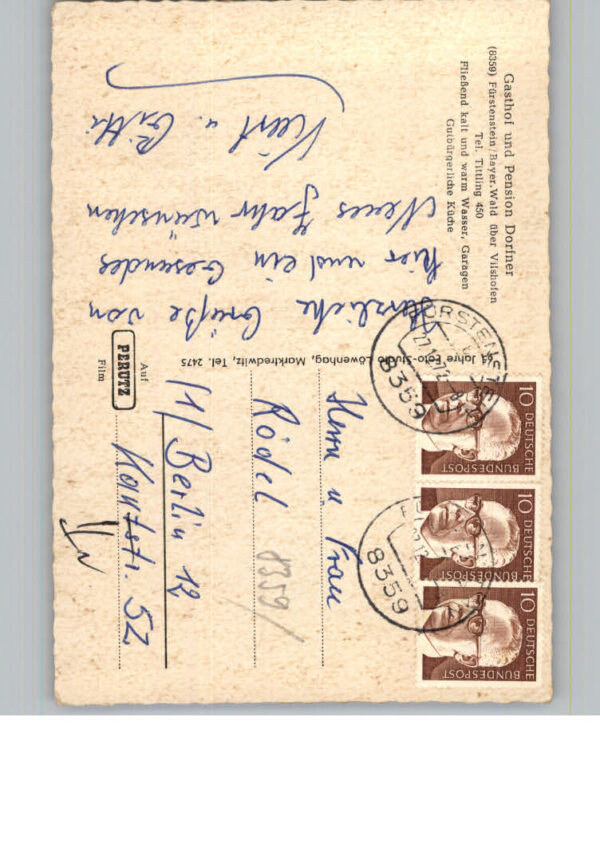 Gasthof und Pension Dorfner
(8359) Fürstenstein/Bayer. Wald über Vilshofen
Tel. Tittling 450
Fließend kalt und warm Wasser, Garagen
Gutbürgerliche Küche
Herzliche Grüße von
hier und ein Gesundes
Neues Jahr wünschen
Jahre Foto-Studio Löwenhag, Marktredwitz, Tel. 2475
Auf
PERUTZ
Film
FÜRSTENSTE
8359
8359
10 DEUTSCHE
BUNDESPOST
10 DEUTSCHE
BUNDESPOST
10 DEUTSCHE
BUNDESPOST
Herrn u Frau
Rödel
8359/
(1) Berlin 12
52